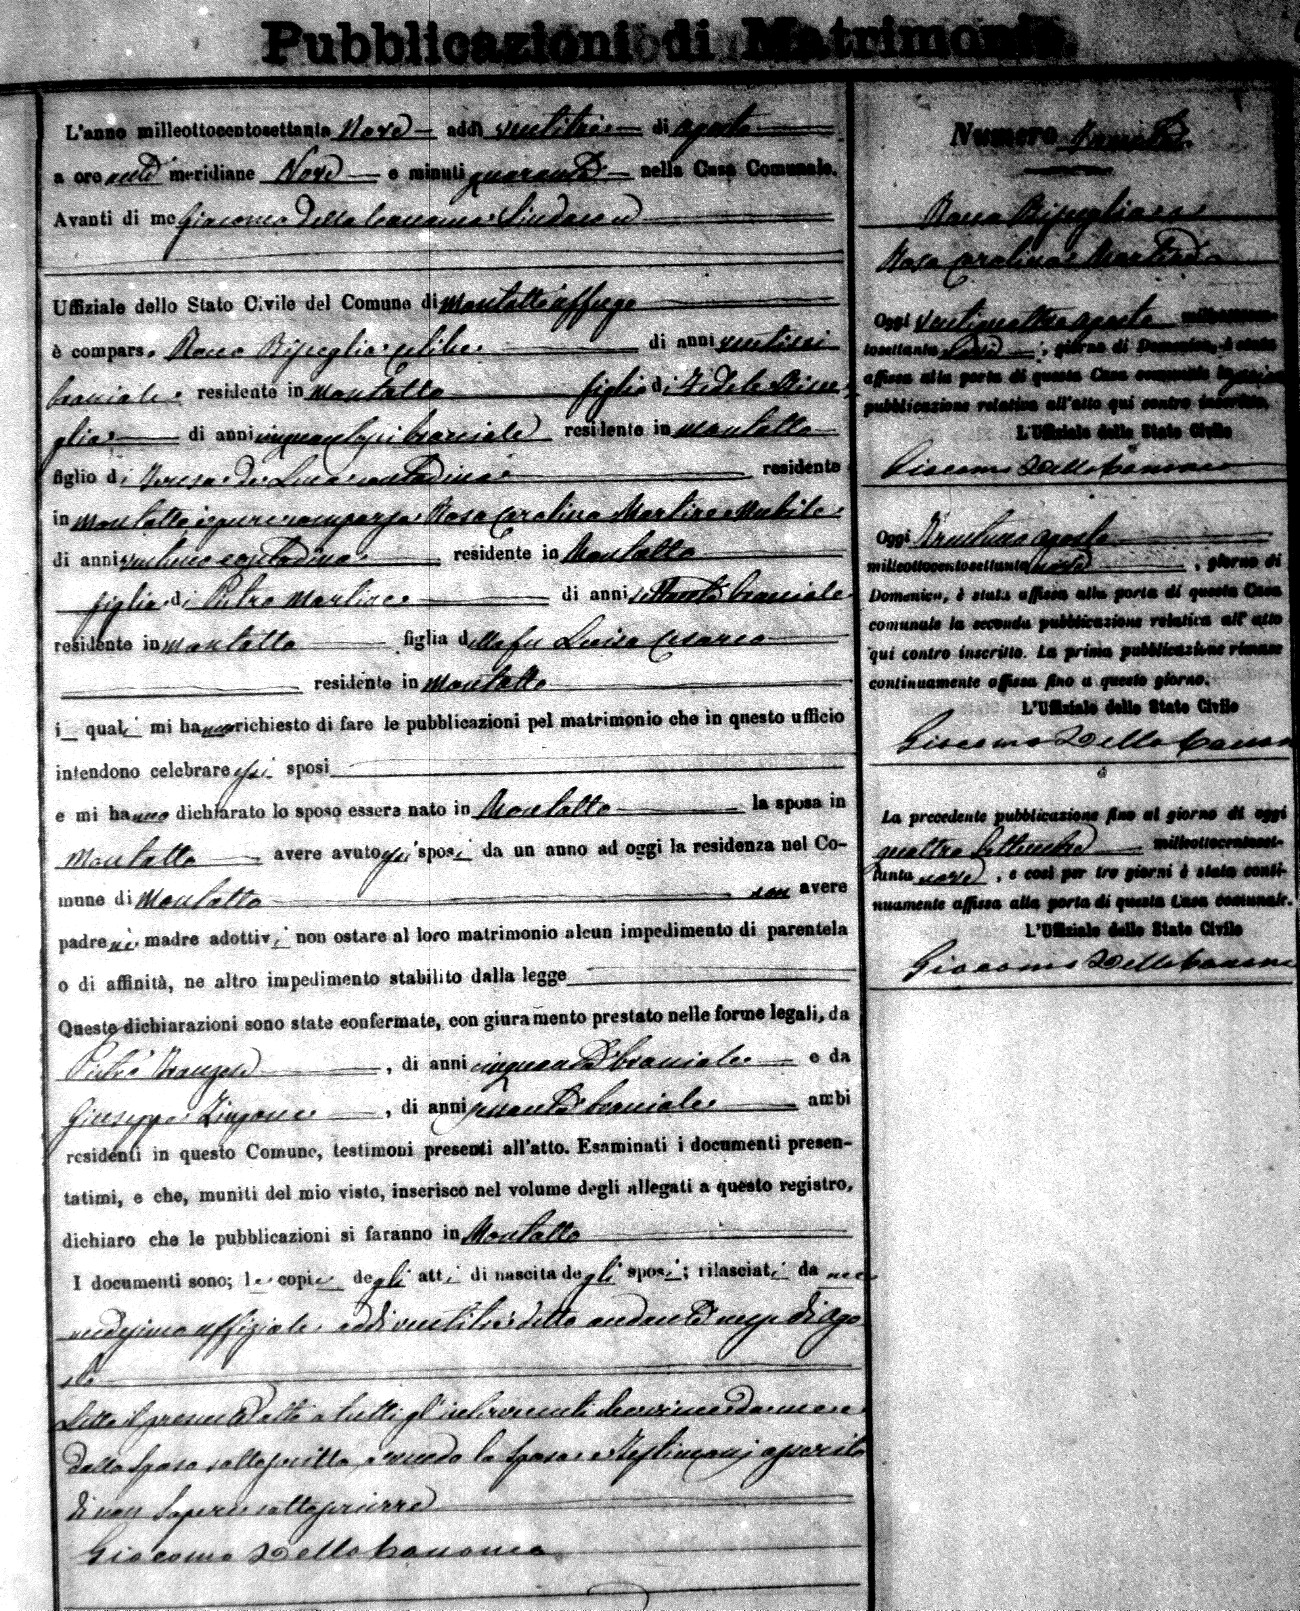 Pubblicazioni di Matrimonio.
L'anno milleottocentosettanta Nove addì ventitre di agosto
a ore anti meridiane Nove e minuti quaranta nella Casa Comunale.
Avanti di me Giacomo Della Canonea Sindaco
Uffiziale dello Stato Civile del Comune di Montalto uffugo
è compars. Rocco Bisuglia celibe di anni ventisei
braciale residente in Montalto figlio di Fidele Bisu-
glia di anni cinquantasei braciale residente in Montalto
figlio di Teresa de Luca contadina residente
in Montalto è pure comparsa Rosa Carolina Martire Nubile
di anni contadina residente in Montalto
figlia di Pietro Martire di anni settanta braciale
residente in Montalto figlia della fu Luisa Cesario
residente in Montalto
i quali mi hanno richiesto di fare le pubblicazioni pel matrimonio che in questo ufficio
intendono celebrare essi sposi
e mi hanno dichiarato lo sposo essere nato in Montalto la sposa in
Montalto avere avuto gli sposi da un anno ad oggi la residenza nel Co-
mune di Montalto non avere
padre nè madre adottivi non ostare al loro matrimonio alcun impedimento di parentela
o di affinità, ne altro impedimento stabilito dalla legge
Queste dichiarazioni sono state confermate, con giuramento prestato nelle forme legali, da
Pietro , di anni cinquanta braciale e da
Giuseppe Zingone , di anni quaranta braciale ambi
residenti in questo Comune, testimoni presenti all'atto. Esaminati i documenti presen-
tatimi, e che, muniti del mio visto, inserisco nel volume degli allegati a questo registro,
dichiaro che le pubblicazioni si faranno in Montalto
I documenti sono; le copie degli atti di nascita degli sposi; rilasciati da me
medesimo uffiziale addì ventitre detto andante mese di Ago
sto
Letto il presente atto a tutti gl'intervenuti
dallo Sposo sottoscritto, avendo la Sposa e Testimonj asserito
di non sapere sottoscrivere
Giacomo Della Canonea
Numero
Rocco Bisuglia e
Rosa Carolina Martire
Oggi ventiquattro agosto milleottocen-
tosettanta nove, giorno di Domenica, è stata
affissa alla porta di questa Casa comunale la prima
pubblicazione relativa all'atto qui contro inscritto.
L'Uffiziale dello Stato Civile
Giacomo Della Canonea
Oggi Trentuno agosto
milleottocentosettanta nove, giorno di
Domenica, è stata affissa alla porta di questa Casa
comunale la seconda pubblicazione relativa all' atto
qui contro inscritto. La prima pubblicazione rimase
continuamente affissa fino a questo giorno.
L'Uffiziale dello Stato Civile
Giacomo Della Canonea
La precedente pubblicazione fino al giorno di oggi
quattro Settembre milleottocentoset-
tanta nove, e così per tre giorni è stata conti-
nuamente affissa alla porta di questa Casa comunale.
L'Uffiziale dello Stato Civile
Giacomo Della Canonea